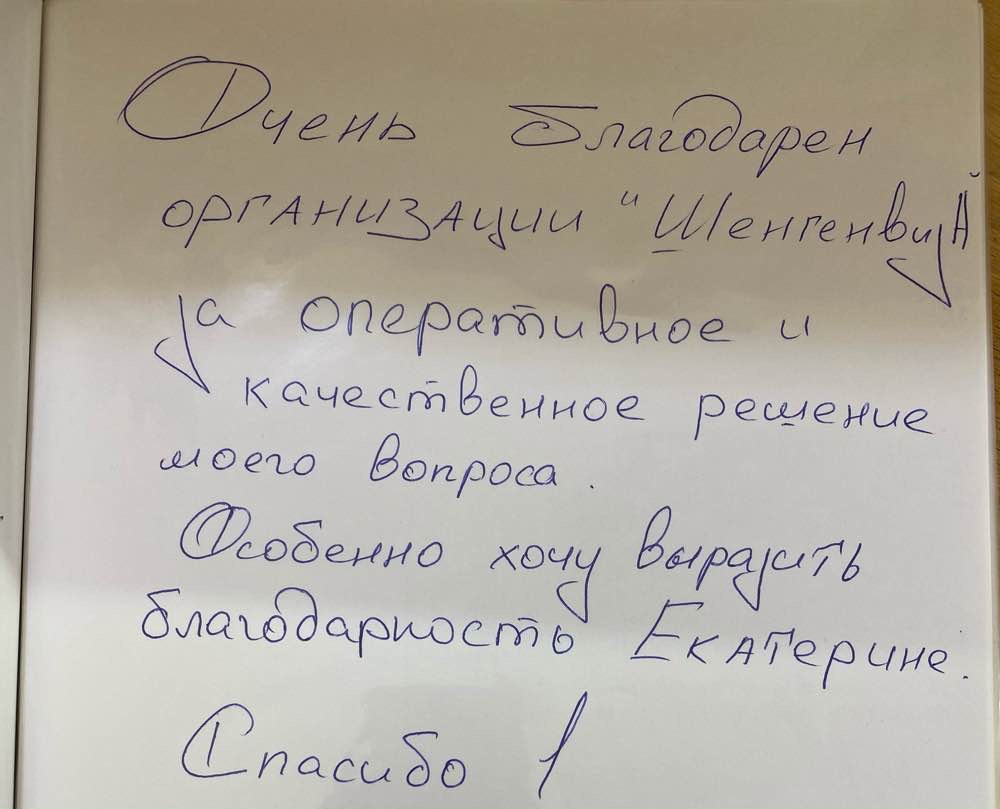 Очень благодарен
организации "ШенгенвизА"
за оперативное и
качественное решение
моего вопроса.
Особенно хочу выразить
благодарность Екатерине.
Спасибо!